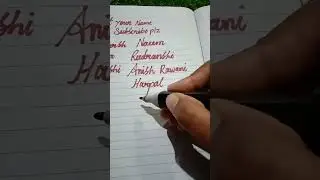 Your Name
Subscribe plz
Naeem
Rudranshi
shi Anish Rawani
Harpal